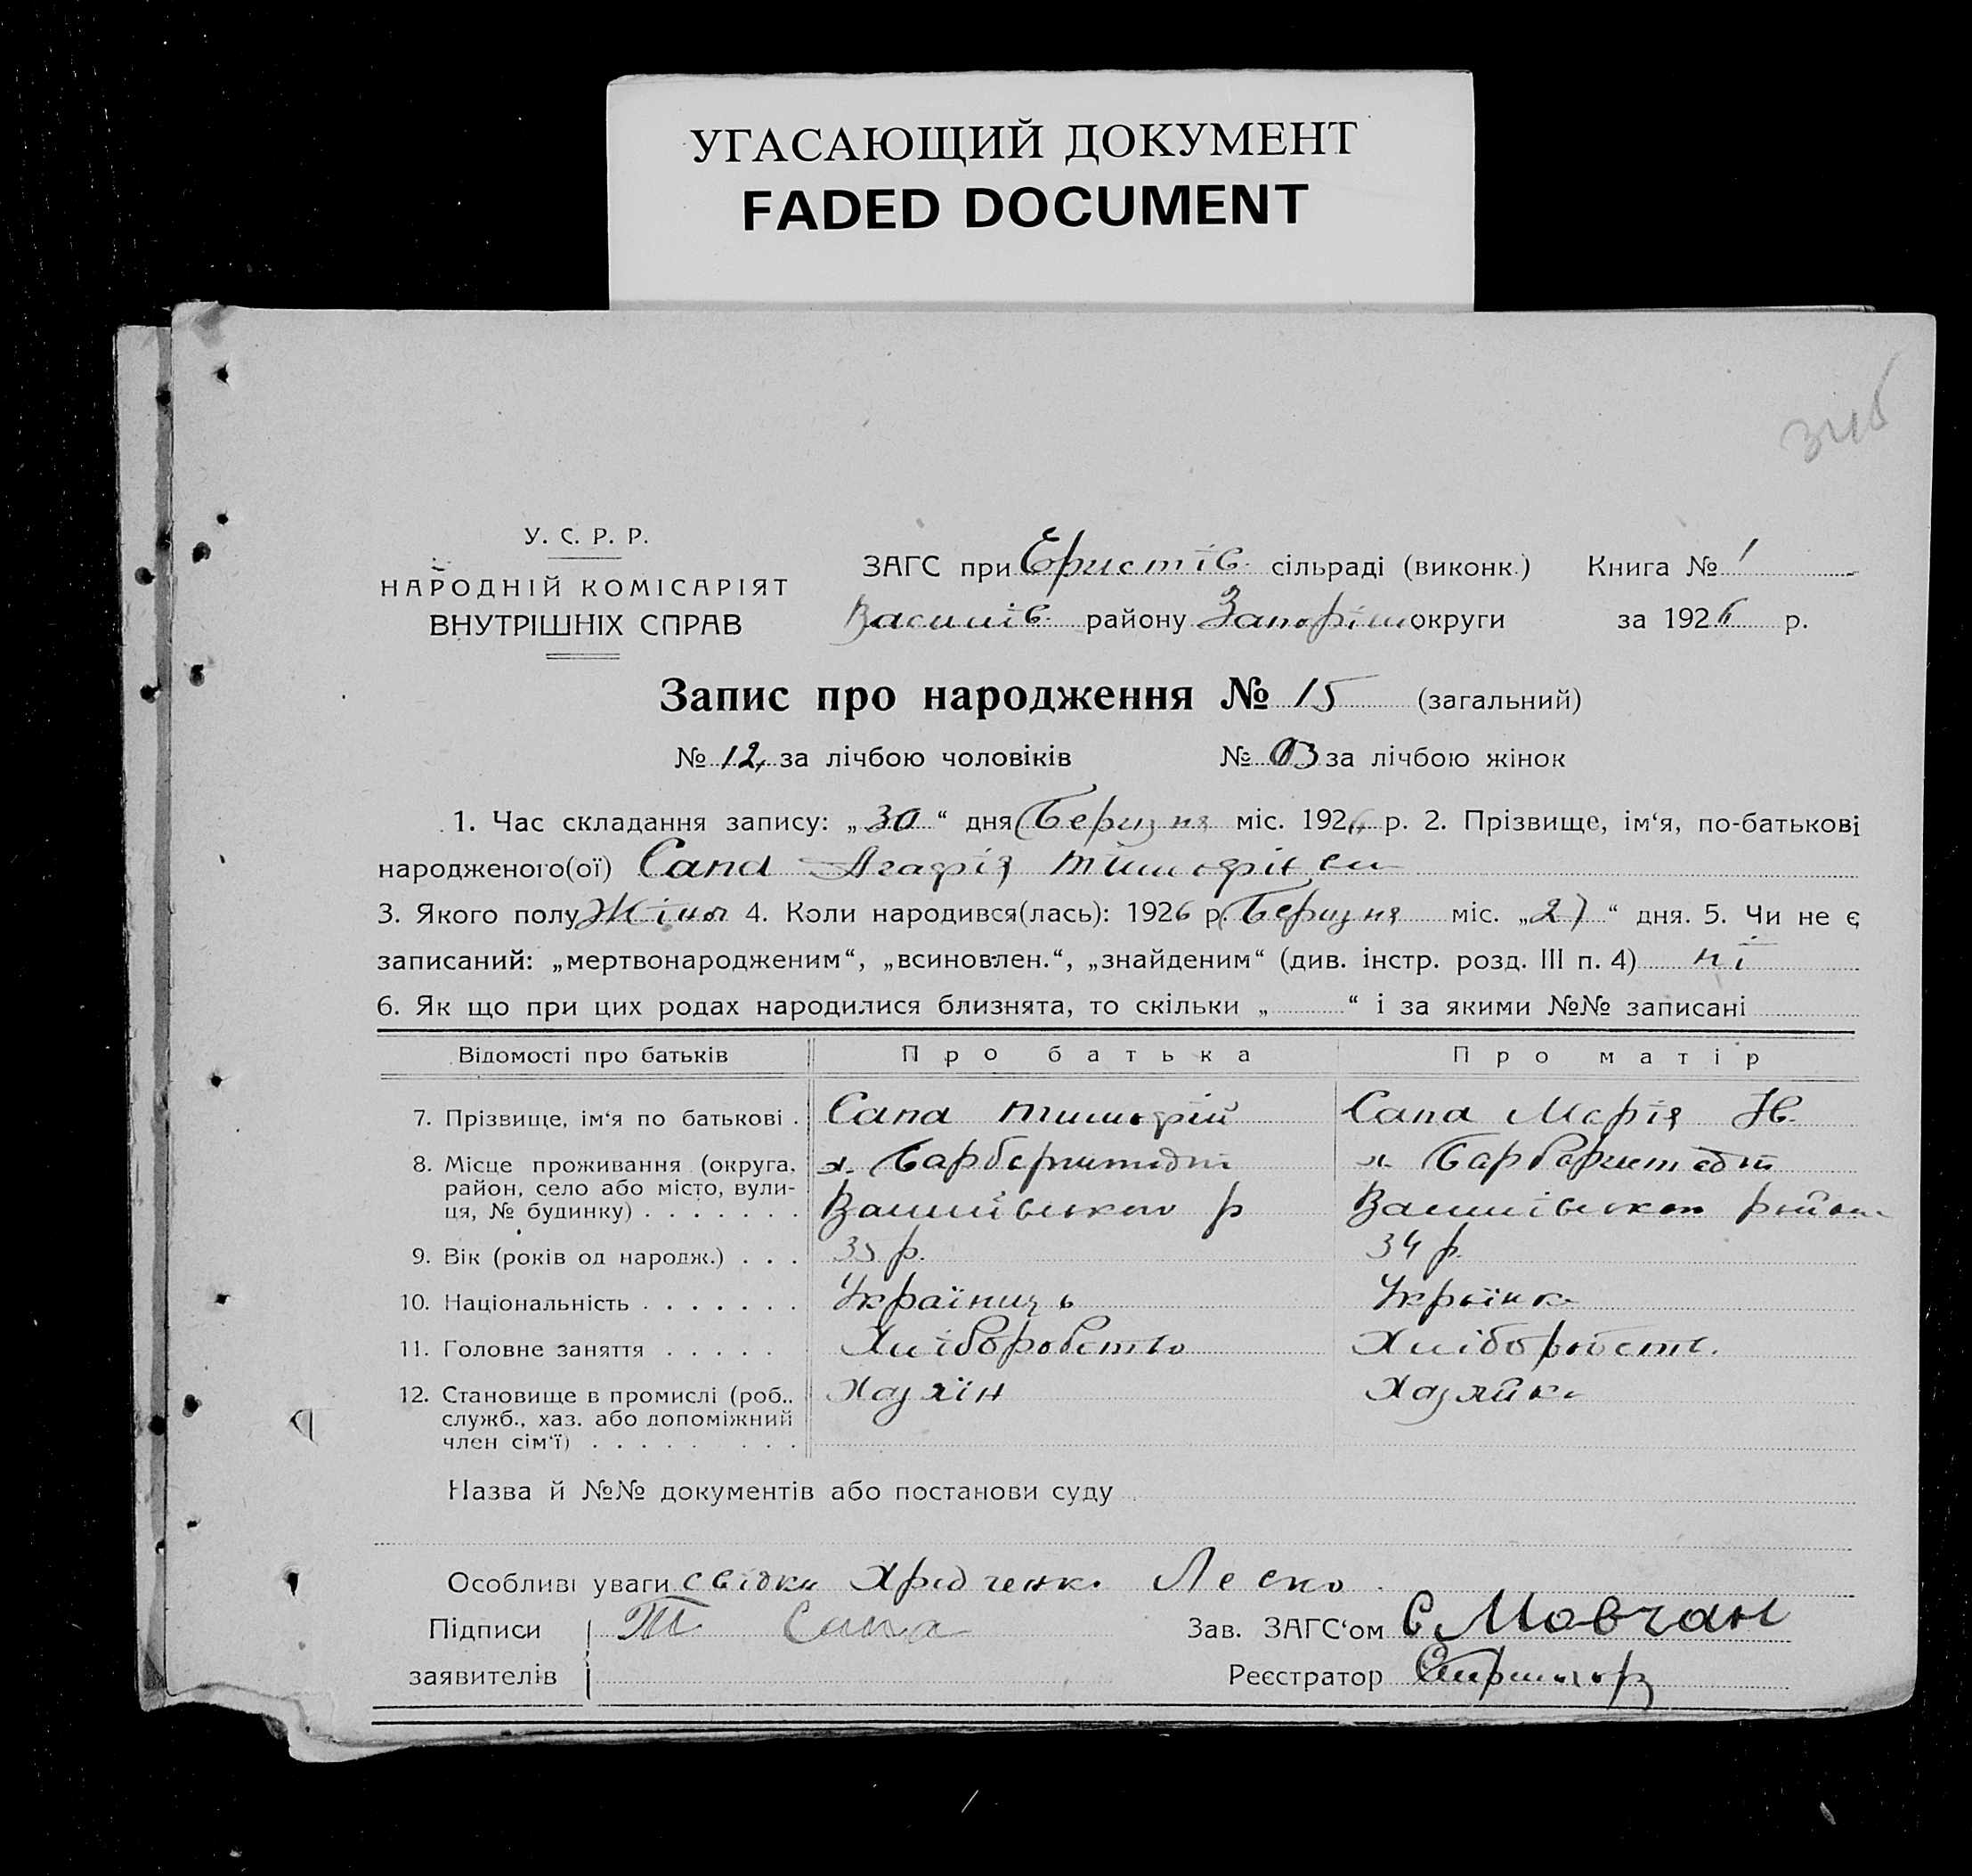 УГАСАЮЩИЙ ДОКУМЕНТ
FADED DOCUMENT
У. С. Р. Р.
НАРОДНІЙ КОМІСАРІЯТ
ВНУТРІШНІХ СПРАВ
ЗАГС при Еристів. сільраді (виконк.) Книга № 1
Василів. району Запоріш округи за 1926 р.
Запис про народження № 15 (загальний)
№ 12 за лічбою чоловіків № 03 за лічбою жінок
1. Час складання запису: „30“ дня Беризня міс. 1926 р. 2. Прізвище, ім‘я, по-батькові
народженого(ої) Сапа Агафія Тимофієв
3. Якого полу Жіно 4. Коли народився(лась): 1926 р. Беризня міс. „27“ дня. 5. Чи не є
записаний: „мертвонародженим“, „всиновлен.“, „знайденим“ (див. інстр. розд. III п. 4) ні
6. Як що при цих родах народилися близнята, то скільки „ “ і за якими №№ записані
Відомості про батьків Про батька Про матір
7. Прізвище, ім‘я по батькові . Сапа Тимофій Сапа Марія
8. Місце проживання (округа, х. х.
район, село або місто, вули-
ця, № будинку) . . . . . . . Василівського р Василівського район
9. Вік (років од народж.) . . . 35 р. 34 р.
10. Національність . . . . . . . Україниць Українка
11. Головне заняття . . . . . Хліборобство Хліборобств.
12. Становище в промислі (роб., Хазяїн Хазяйка
служб., хаз. або допоміжний
член сім‘ї) . . . . . . . .
Назва й №№ документів або постанови суду
Особливі уваги свідки
Підписи Т Сапа Зав. ЗАГС‘ом С Мовчан
заявителів Реєстратор